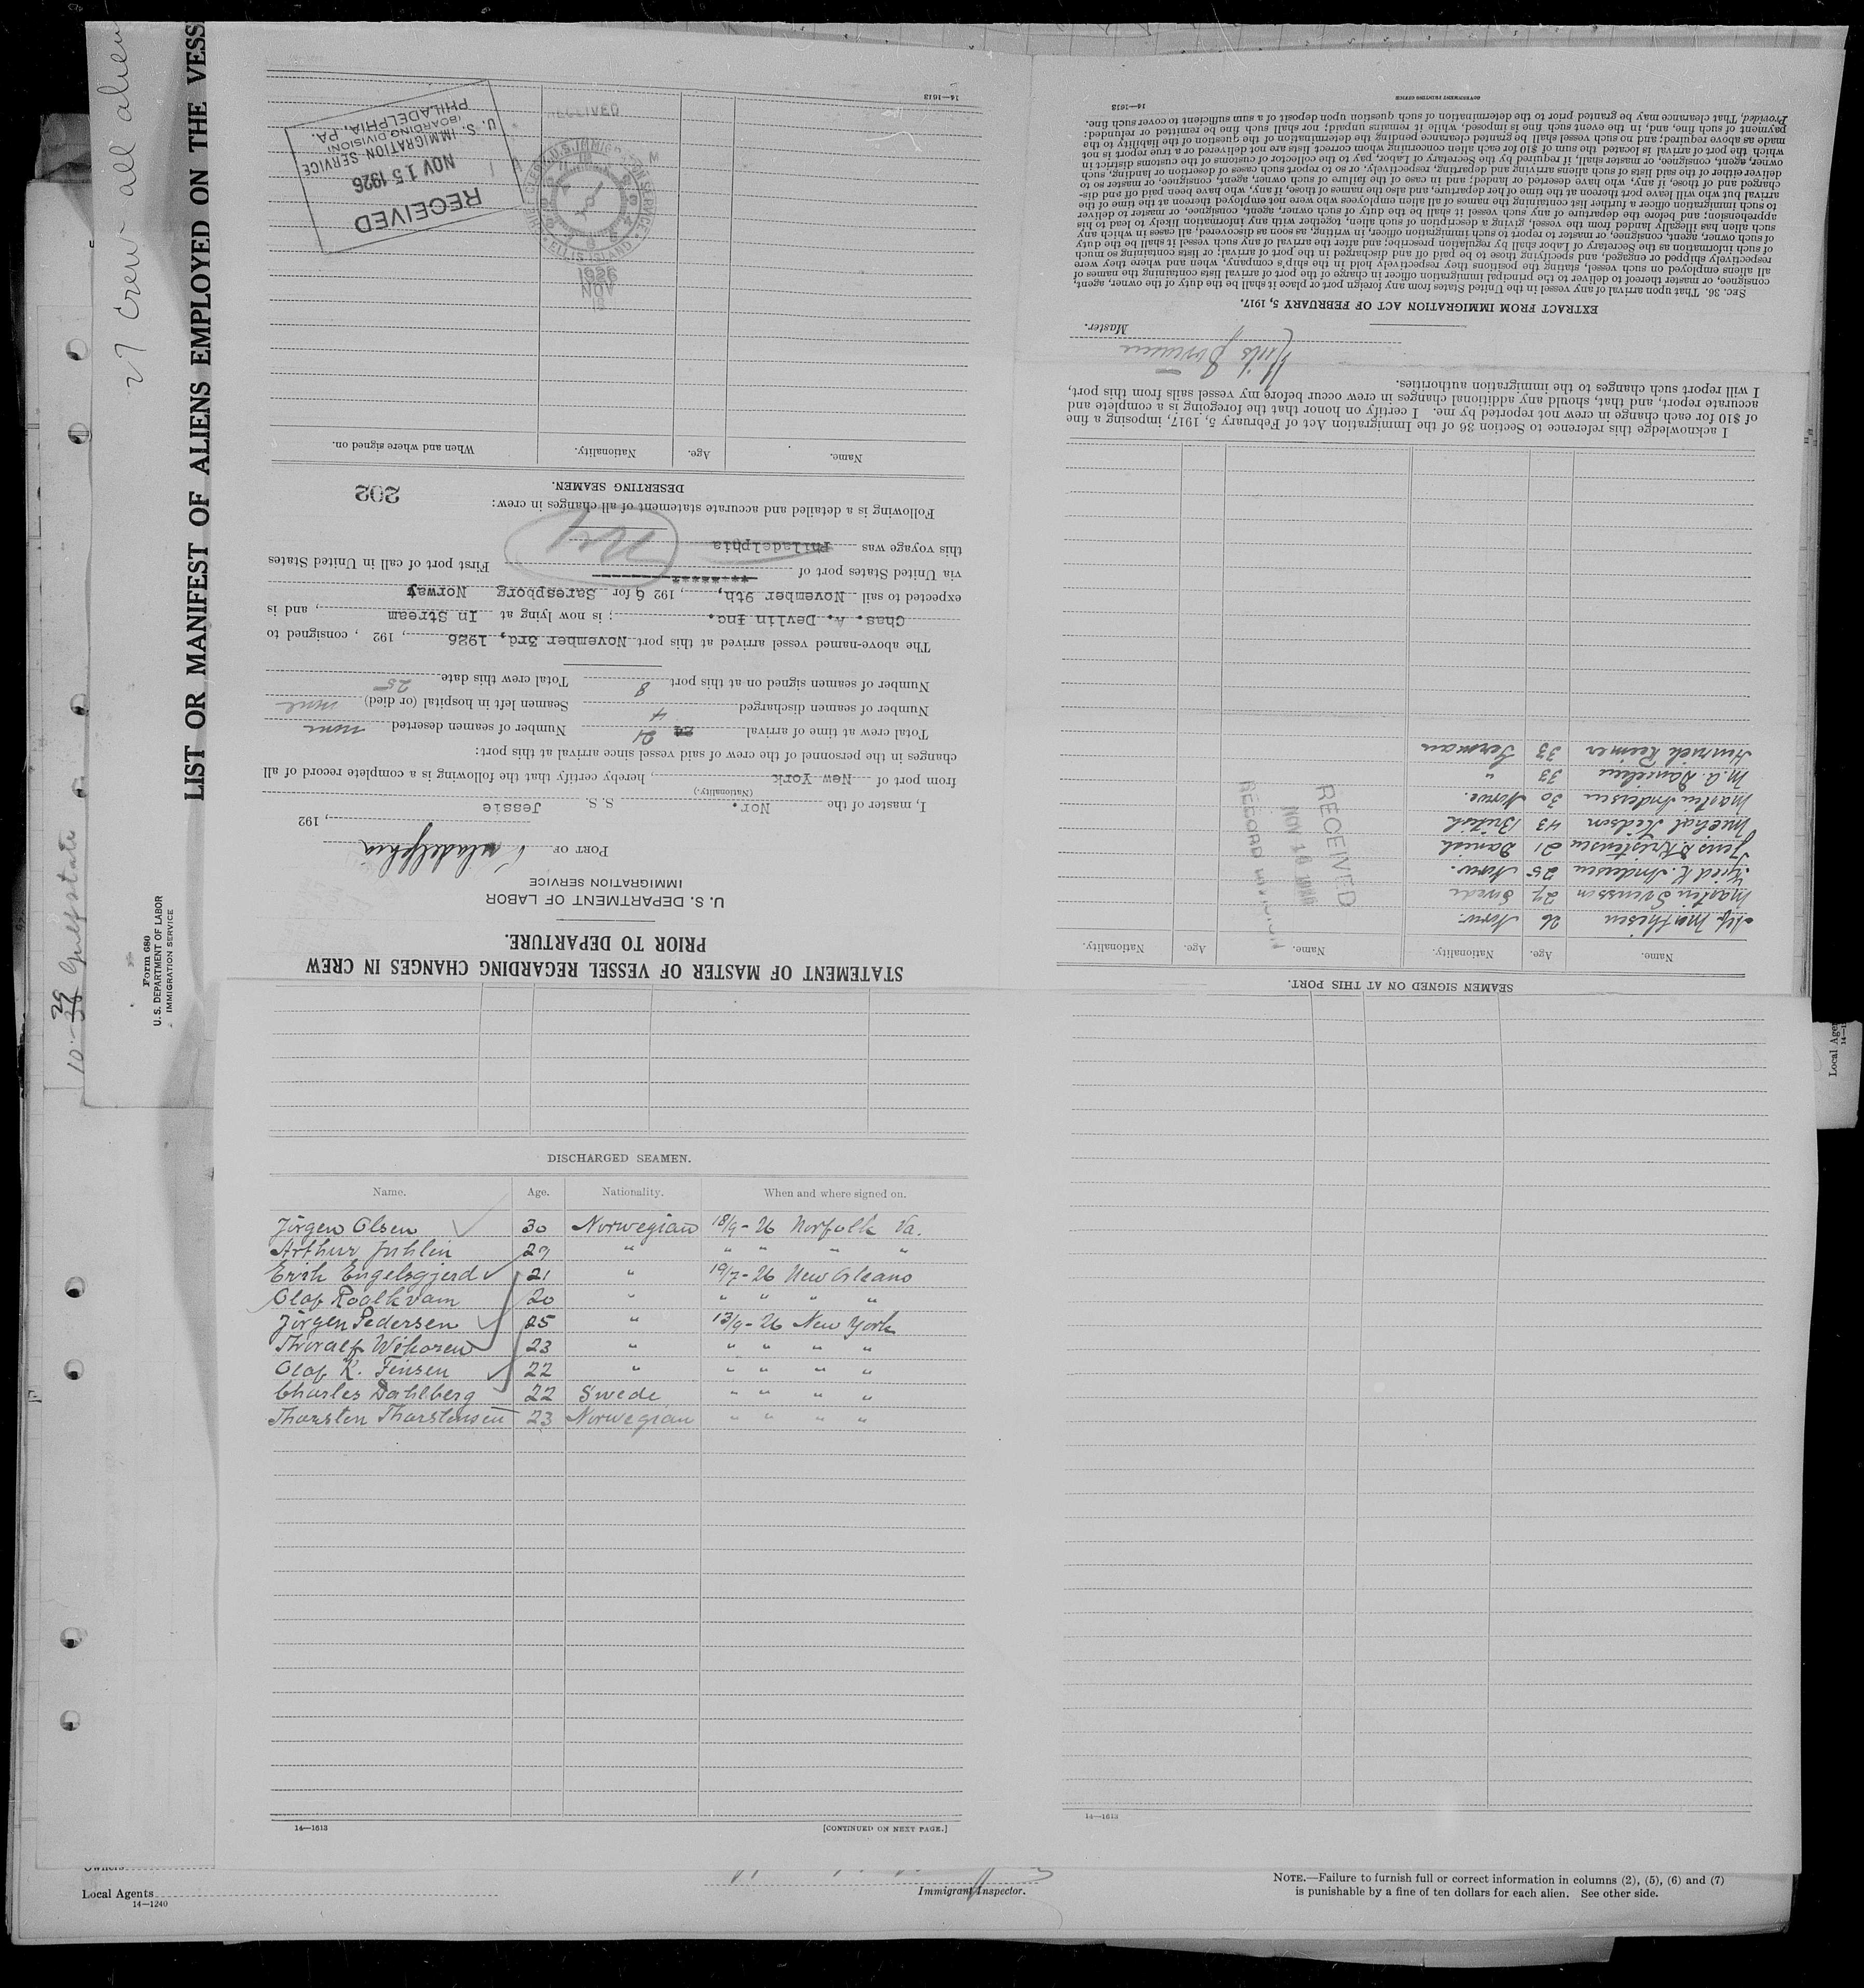 27 Crew all alien
LIST OR MANIFEST OF ALIENS EMPLOYED ON THE VESS
Form 680
U. S. DEPARTMENT OF LABOR
IMMIGRATION SERVICE
10-29 Gulfstate
STATEMENT OF MASTER OF VESSEL REGARDING CHANGES IN CREW
PRIOR TO DEPARTURE.
U. S. DEPARTMENT OF LABOR
IMMIGRATION SERVICE
PORT OF Philadelphia, 192
I, master of the Nor. S. S. Jessie
(Nationality.)
from port of New York, hereby certify that the following is a complete record of all
changes in the personnel of the crew of said vessel since arrival at this port:
Total crew at time of arrival 21 Number of seamen deserted none
Number of seamen discharged 4 Seamen left in hospital (or died) none
Number of seamen signed on at this port 8 Total crew this date 25
The above-named vessel arrived at this port November 3rd, 1926, 192 , consigned to
Chas. A. Devlin Inc.; is now lying at In Stream, and is
expected to sail November 9th, 192 6 for Saresborg Norway
via United States port of First port of call in United States
this voyage was Philadelphia
Following is a detailed and accurate statement of all changes in crew:
202
DESERTING SEAMEN.
Name. Age. Nationality. When and where signed on.
RECEIVED
NOV 15 1926
U. S. IMMIGRATION SERVICE
(BOARDING DIVISION)
PHILADELPHIA, PA.
RECEIVED
U.S. IMMIGRATION SERVICE
ELLIS ISLAND
1926
NOV
14—1613
DISCHARGED SEAMEN.
Name. Age. Nationality. When and where signed on.
Jörgen Olsen 30 Norwegian 18/9-26 Norfolk Va.
Arthur Juhlin 29 " " " " "
Erik Engelsgjerd 21 " 19/7-26 New Orleans
Olaf Roalkvam 20 " " " " "
Jörgen Pedersen 25 " 13/9-26 New York
Thoralf 23 " " " " "
Olaf K. Finsen 22 " " " " "
Charles Dahlberg 22 Swede " " " "
Thorsten Thorstensen 23 Norwegian " " " "
14—1613
[CONTINUED ON NEXT PAGE.]
SEAMEN SIGNED ON AT THIS PORT.
Name. Age. Nationality. Name. Age. Nationality.
Alf Mathisen 26 Norw.
Martin Svensson 27 Swede
K. Andersen 25 Norw.
Jens S. Kristensen 21 Danish
Micehal 43 British
Martin Andersen 30 Norw.
M. A. Danielsen 33 "
Heinrich Reimer 33 German
RECEIVED
NOV 16 1926
RECORD DIVISION
I acknowledge this reference to Section 36 of the Immigration Act of February 5, 1917, imposing a fine
of $10 for each change in crew not reported by me. I certify on honor that the foregoing is a complete and
accurate report, and that, should any additional changes in crew occur before my vessel sails from this port,
I will report such changes to the immigration authorities.
Master.
EXTRACT FROM IMMIGRATION ACT OF FEBRUARY 5, 1917.
SEC. 36. That upon arrival of any vessel in the United States from any foreign port or place it shall be the duty of the owner, agent,
consignee, or master thereof to deliver to the principal immigration officer in charge of the port of arrival lists containing the names of
all aliens employed on such vessel, stating the positions they respectively hold in the ship's company, when and where they were
respectively shipped or engaged, and specifying those to be paid off and discharged in the port of arrival; or lists containing so much
of such information as the Secretary of Labor shall by regulation prescribe; and after the arrival of any such vessel it shall be the duty
of such owner, agent, consignee, or master to report to such immigration officer, in writing, as soon as discovered, all cases in which any
such alien has illegally landed from the vessel, giving a description of such alien, together with any information likely to lead to his
apprehension; and before the departure of any such vessel it shall be the duty of such owner, agent, consignee, or master to deliver
to such immigration officer a further list containing the names of all alien employees who were not employed thereon at the time of the
arrival but who will leave port thereon at the time of her departure, and also the names of those, if any, who have been paid off and dis-
charged and of those, if any, who have deserted or landed; and in case of the failure of such owner, agent, consignee, or master so to
deliver either of the said lists of such aliens arriving and departing, respectively, or so to report such cases of desertion or landing, such
owner, agent, consignee, or master shall, if required by the Secretary of Labor, pay to the collector of customs of the customs district in
which the port of arrival is located the sum of $10 for each alien concerning whom correct lists are not delivered or a true report is not
made as above required; and no such vessel shall be granted clearance pending the determination of the question of the liability to the
payment of such fine, and, in the event such fine is imposed, while it remains unpaid; nor shall such fine be remitted or refunded:
Provided, That clearance may be granted prior to the determination of such question upon deposit of a sum sufficient to cover such fine.
14—1613
GOVERNMENT PRINTING OFFICE
14—1613
Owners
Local Agents
14—1240
Immigrant Inspector.
NOTE.—Failure to furnish full or correct information in columns (2), (5), (6) and (7)
is punishable by a fine of ten dollars for each alien. See other side.
Local Age